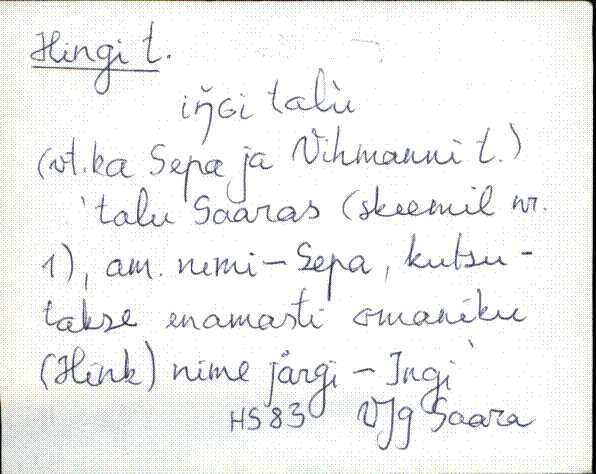 Hingi t.
iŋ̆Gi talù
(vt. ka Sepa ja Vihmanni t.)
'talu Saaras (skeemil nr.
1), am. nimi - Sepa, kutsu-
takse enamasti omaniku
(Hink) nime järgi - Ingi
HS 83 VJg Saara